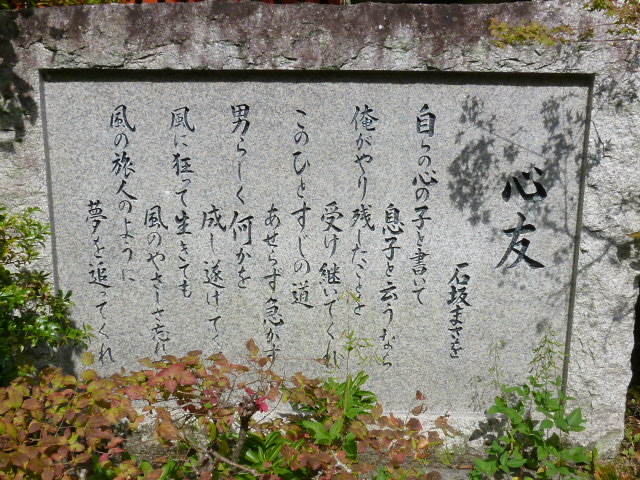 心友
石坂まさを
自らの心の子と書いて
息子と云うなら
俺がやり残したことを
受け継いでくれ
このひとすじの道
あせらず急がず
男らしく何かを
成し遂げてく
風に狂って生きても
風のやさしさ忘れ
風の旅人のように
夢を追ってくれ